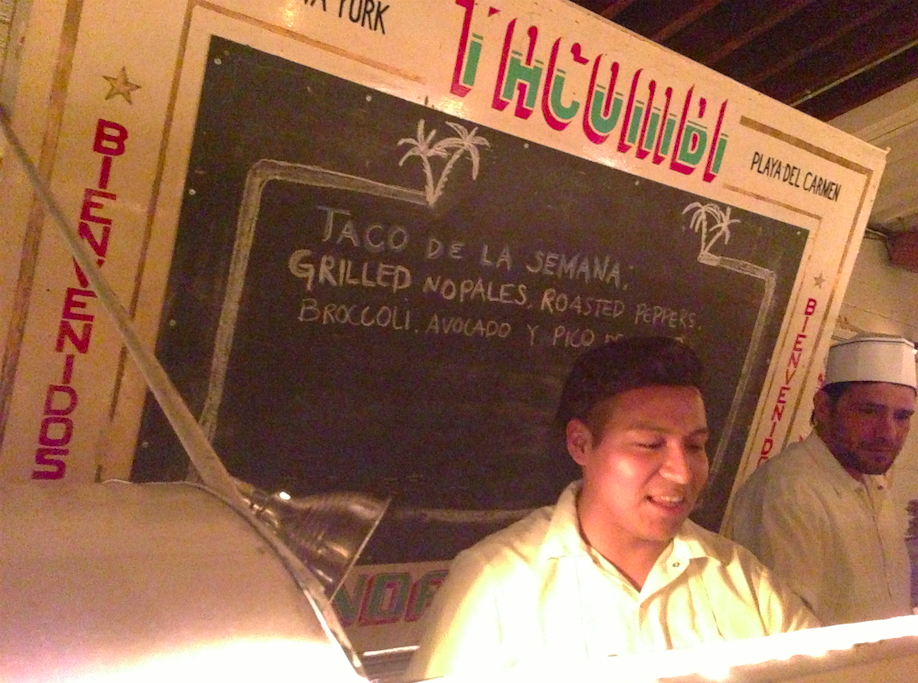 YORK
TACUMBI
PLAYA DEL CARMEN
BIENVENIDOS
TACO DE LA SEMANA:
GRILLED NOPALES, ROASTED PEPPERS,
BROCCOLI, AVOCADO Y PICO
BIENVENIDOS